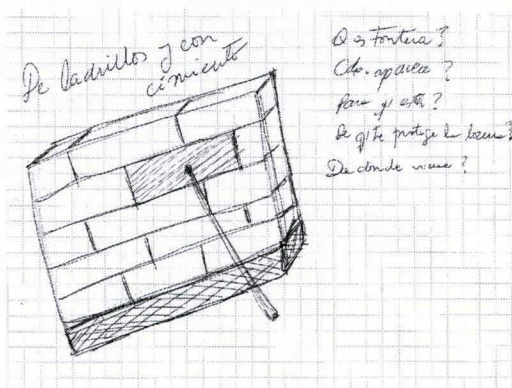 De ladrillos y con
cimiento
Q es Fontera?
Cdo. aparece?
Para q está?
De q te protege la barrera?
De donde viene?